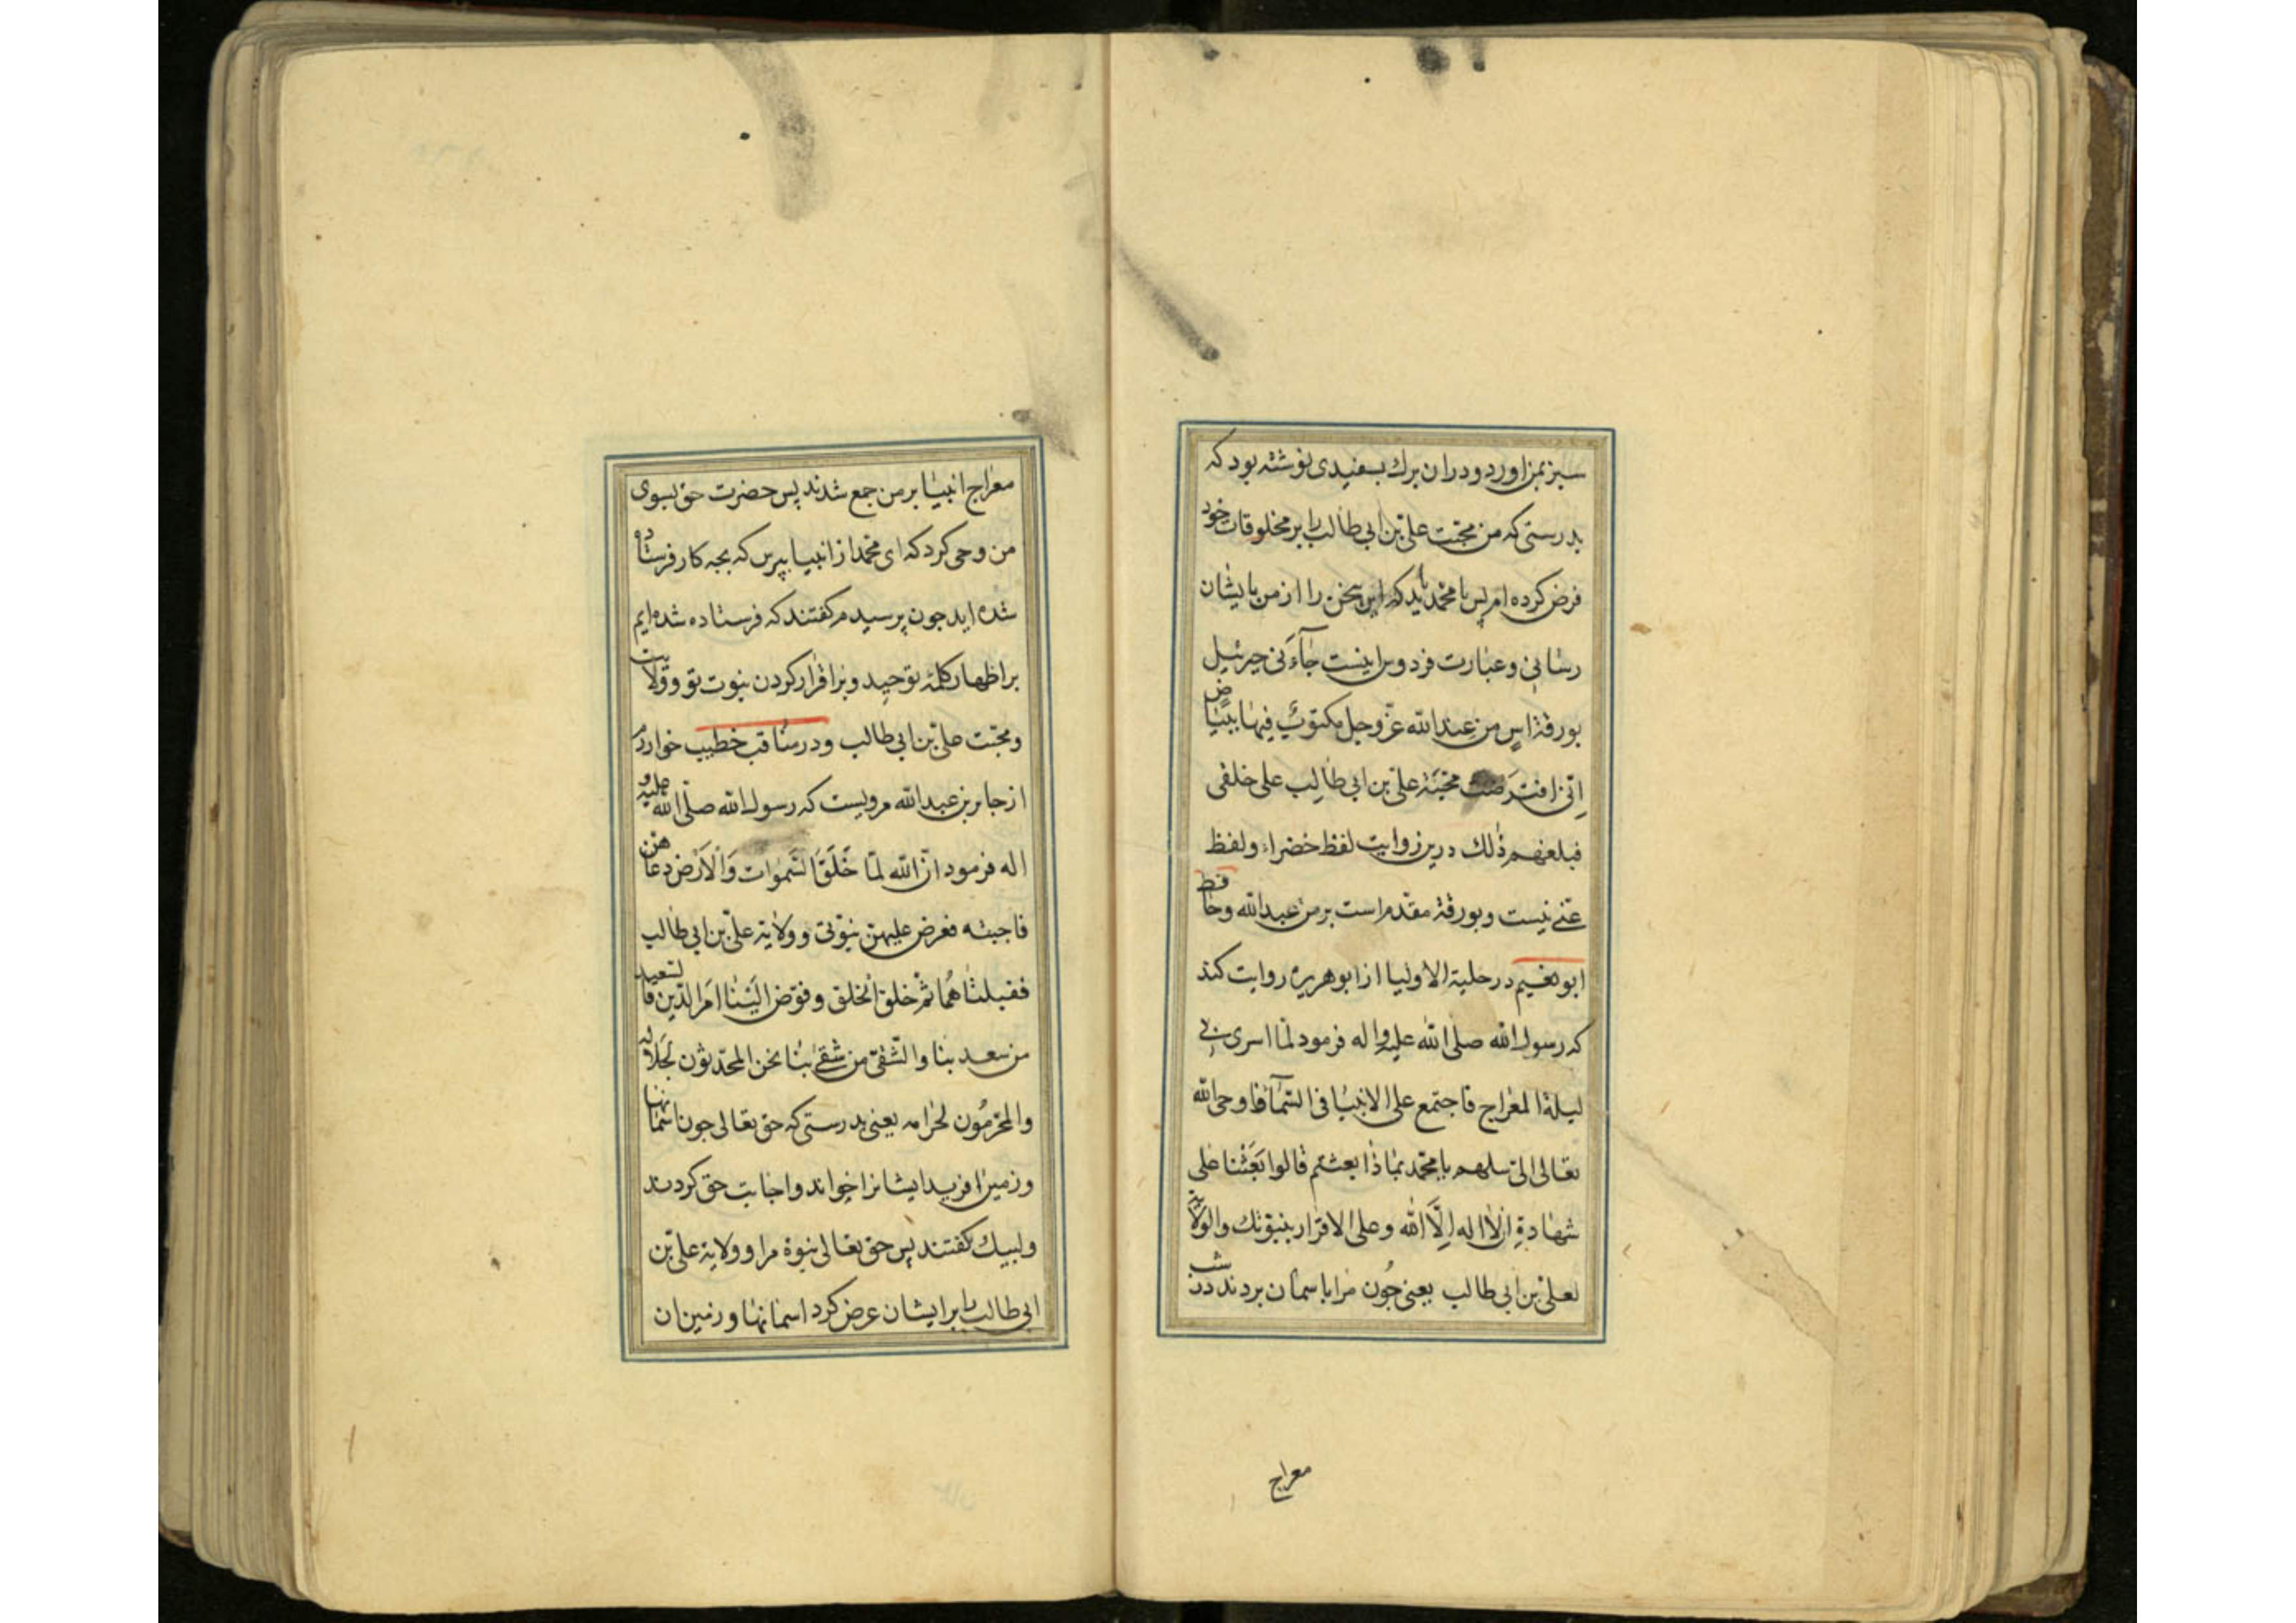 سبز بمن اورد و در ان برك بسفیدی نوشته بود که
بدرستی که من محبّت علی بن ابی طالب را بر مخلوقات خود
فرض کرده ام پس یا محمد باید که این سخن را از من بایشان
رسانی و عبارت فردوس اینست جآءَنی جبرئیل
بورقة اسٍ من عِند الله عزّ وجل مکتوبٌ فیها بیٰاضٍ
اِنّی افترَضت محبّة علیّ بن ابی طالِب علی خلقی
فبلغهم ذٰلك درین روایت لفظ خضراء و لفظ
عنّے نیست و بورقة مقدم است بر من عبد الله و حافظ
ابو نعیم در حلیة الاولیا از ابو هریره روایت کند
که رسول الله صلی الله علیه و اله فرمود لمّا اسری بی
لیلة المعراج فاجتمع علی الانبیٰا فی السّمآء فاوحی الله
تعالی الیّ سلهم یا محمّد بمٰا ذٰا بعثتم قالوا بَعَثْنا علی
شهٰادةِ ان لاٰ اله اِلّا الله و علی الاقرار بنبوّتك والولایة
لعلیّ بن ابی طالب یعنی چُون مرا باسمان بردند در شب
معراج
معراج انبیٰا بر من جمع شدند پس حضرت حق بسوی
من وحی کرد که ای محمّد از انبیا بپرس که بچه کار فرستاده
شده اید چون پرسیدم کفتند که فرستاده شده ایم
بر اظهار کلمهٔ توحید و بر اقرار کردن بنبوت تو و ولایت
و محبّت علیّ بن ابی طالب و در مناقب خطیب خوارزم
از جابر بن عبدالله مرویست که رسول الله صلّی الله علیه و
اله فرمود انّ الله لمّا خَلَقَ السَّموات وَالْاَرْض دعاهن
فاجبنه فعرض علیهنّ نبوّتی و ولایة علیّ بن ابی طالب
فقبلتٰاهُما ثمّ خلق الخلق و فوّض الَیْنٰا امر الدّین فالسّعید
من سعد بنا والشّقی من شقے بنٰا نحن المحلّلون لحَلاله
والمحرّمُون لحرامه یعنی بدرستی که حق تعالی چون اسمانها
و زمین را افرید ایشانرا خواند و اجابت حق کردند
و لبیك کفتند پس حق تعالی نبوة مرا و ولایة علی بن
ابی طالب را بر ایشان عرض کرد اسمانهٰا و زمین ان